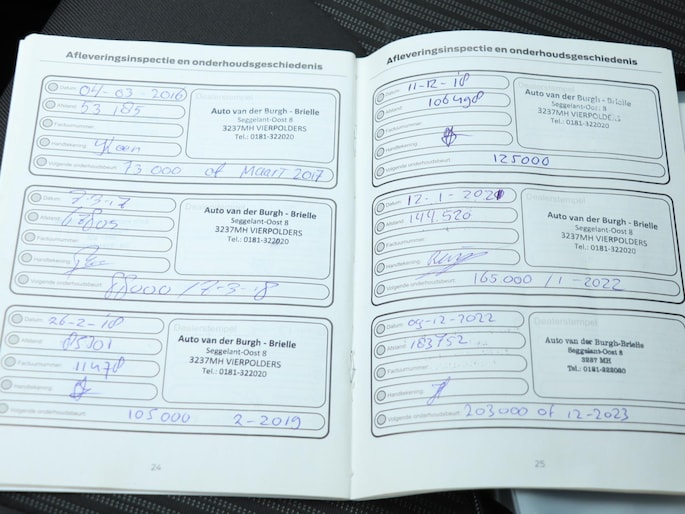 Afleveringsinspectie en onderhoudsgeschiedenis
Datum: 04-03-2016
Afstand: 53185
Factuurnummer:
Handtekening:
Volgende onderhoudsbeurt: 73000 of MAART 2017
Auto van der Burgh - Brielle
Seggelant-Oost 8
3237MH VIERPOLDERS
Tel.: 0181-322020
Datum:
Afstand:
Factuurnummer:
Handtekening:
Volgende onderhoudsbeurt: 88000 / 7-3-18
Auto van der Burgh - Brielle
Seggelant-Oost 8
3237MH VIERPOLDERS
Tel.: 0181-322020
Datum: 26-2-18
Afstand: 85301
Factuurnummer: 11478
Handtekening:
Volgende onderhoudsbeurt: 105000 2-2019
Dealerstempel
Auto van der Burgh - Brielle
Seggelant-Oost 8
3237MH VIERPOLDERS
Tel.: 0181-322020
24
Afleveringsinspectie en onderhoudsgeschiedenis
Datum: 11-12-18
Afstand: 106498
Factuurnummer:
Handtekening:
Volgende onderhoudsbeurt: 125000
Auto van der Burgh - Brielle
Seggelant-Oost 8
3237MH VIERPOLDERS
Tel.: 0181-322020
Datum: 12-1-2021
Afstand: 144.520
Factuurnummer:
Handtekening:
Volgende onderhoudsbeurt: 165.000 /1-2022
Dealerstempel
Auto van der Burgh - Brielle
Seggelant-Oost 8
3237MH VIERPOLDERS
Tel.: 0181-322020
Datum: 09-12-2022
Afstand: 183752
Factuurnummer:
Handtekening:
Volgende onderhoudsbeurt: 203000 of 12-2023
Dealerstempel
Auto van der Burgh-Brielle
Seggelant-Oost 8
3237 MH
Tel.: 0181-322020
25